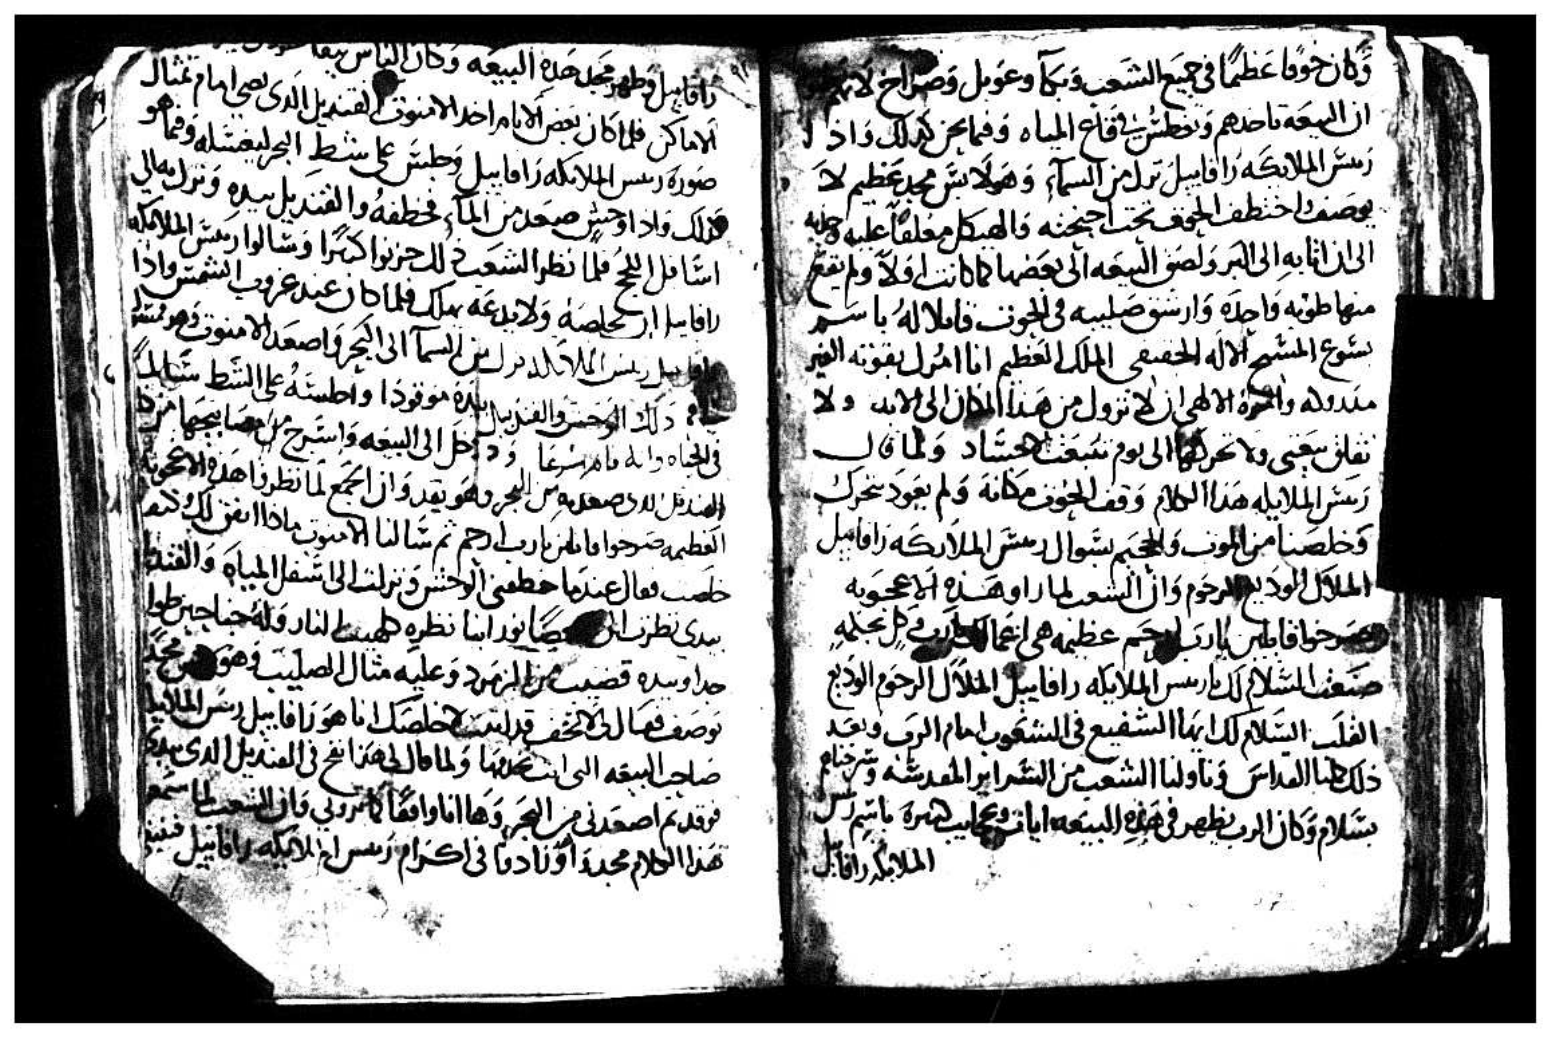 وكان خوفا عظيما في جميع الشعب وبكآ وعويل وصراخ لانهم
ان البيعه تاخدهم وتغطس في قاع المياه وفيما نحن كدلك واذا
رييس الملايكه رافاييل نزل من السمآء وهو لابس مجد عظيم لا
يوصف واختطف الحوت تحت اجنحته والهيكل مغلقا عليه
الى ان اتا به الى البر ولصق البيعه الى بعضها كما كانت اولا ولم يقع
منها طوبه واحده وارشق صليبه في الحوت قايلا له باسم
يسوع المسيح الاله الحقيقى الملك العظيم انا امرك بقوته الغير
مدروكه وامره الالهى ان لا تزول من هدا المكان الى الابد ولا
تقلق بيعتى ولا تحركها الى يوم تبعث الاجساد ولما قال
رييس الملايكه هدا الكلام وقف الحوت مكانه ولم يعود يتحرك
وخلصنا من الموت والجحيم بسوال رييس الملايكه رافاييل
الملاك الوديع الرحوم وان الشعب لما راو هده الاعجوبه
صرخوا قايلين يارب ارحم عظيمه هى اعمالك يارب كل بحكمه
صنعت السلام لك يا رييس الملايكه رافاييل الملاك الرحوم الوديع
القلب السلام لك ايها الشفيع في الشعوب امام الرب وبعد
دلك كملنا القداس وناولنا الشعب من السراير المقدسه وسرحناهم
بسلام وكان الرب يظهر في هده البيعه ايات وعجايب كتيره باسم رييس
الملايكه رافاييل
رافاييل وظهر مجد هده البيعه وكان الناس
الاماكن فلما كان بعض الايام احد الامنوت القنديل الدى يضى امام تمثال
صورة رييس الملايكه رافاييل وجلس على شط البحر ليغسله وفيما هو
كدلك وادا وحش صعد من المآء فخطفه والقنديل بيده ونزل به الى
اسافل اللجج فلما نظر الشعب دلك حزنوا كتيرا وسالوا رييس الملايكه
رافاييل ان يخلصه ولا يدعه يهلك فلما كان عند غروب الشمس وادا
رافاييل رييس الملايكه نزل من السمآ الى البحر واصعد الامنوت وهو
دلك الوحش والقنديل بيده موقودا واجلسه على الشط سالما
في الحياه وانه قام مسرعا ودخل الى البيعه واسرج من مصابيحها من
القنديل الدى صعد به من البحر وهو يقد وان الجميع لما نظروا هده الاعجوبه
العظيمه صرخوا قايلين يارب ارحم ثم سالنا الامنوت مادا اتفق لك وكيف
خلصت فقال عندما خطفنى الوحش ونزلت الى اسفل المياه والقنديل
بيدى نظرت الى نورانيا نظره كلهيب النار وله جناحين
جدا وبيده قضيب من الزمرد وعليه متال الصليب وهو
يوصف فقال لى لا تخف قد اتيت لاخلصك انا هو رافاييل رييس الملايكه
صاحب البيعه التى انت تخدمها ولما قال لى هدا نفخ في القنديل الدى بيدى
فوقد ثم اصعدنى من البحر وها انا واقفا كما ترونى وان الشعب لما سمعو
هدا الكلام مجدو الله وزادوا في اكرام رييس الملايكه رافاييل